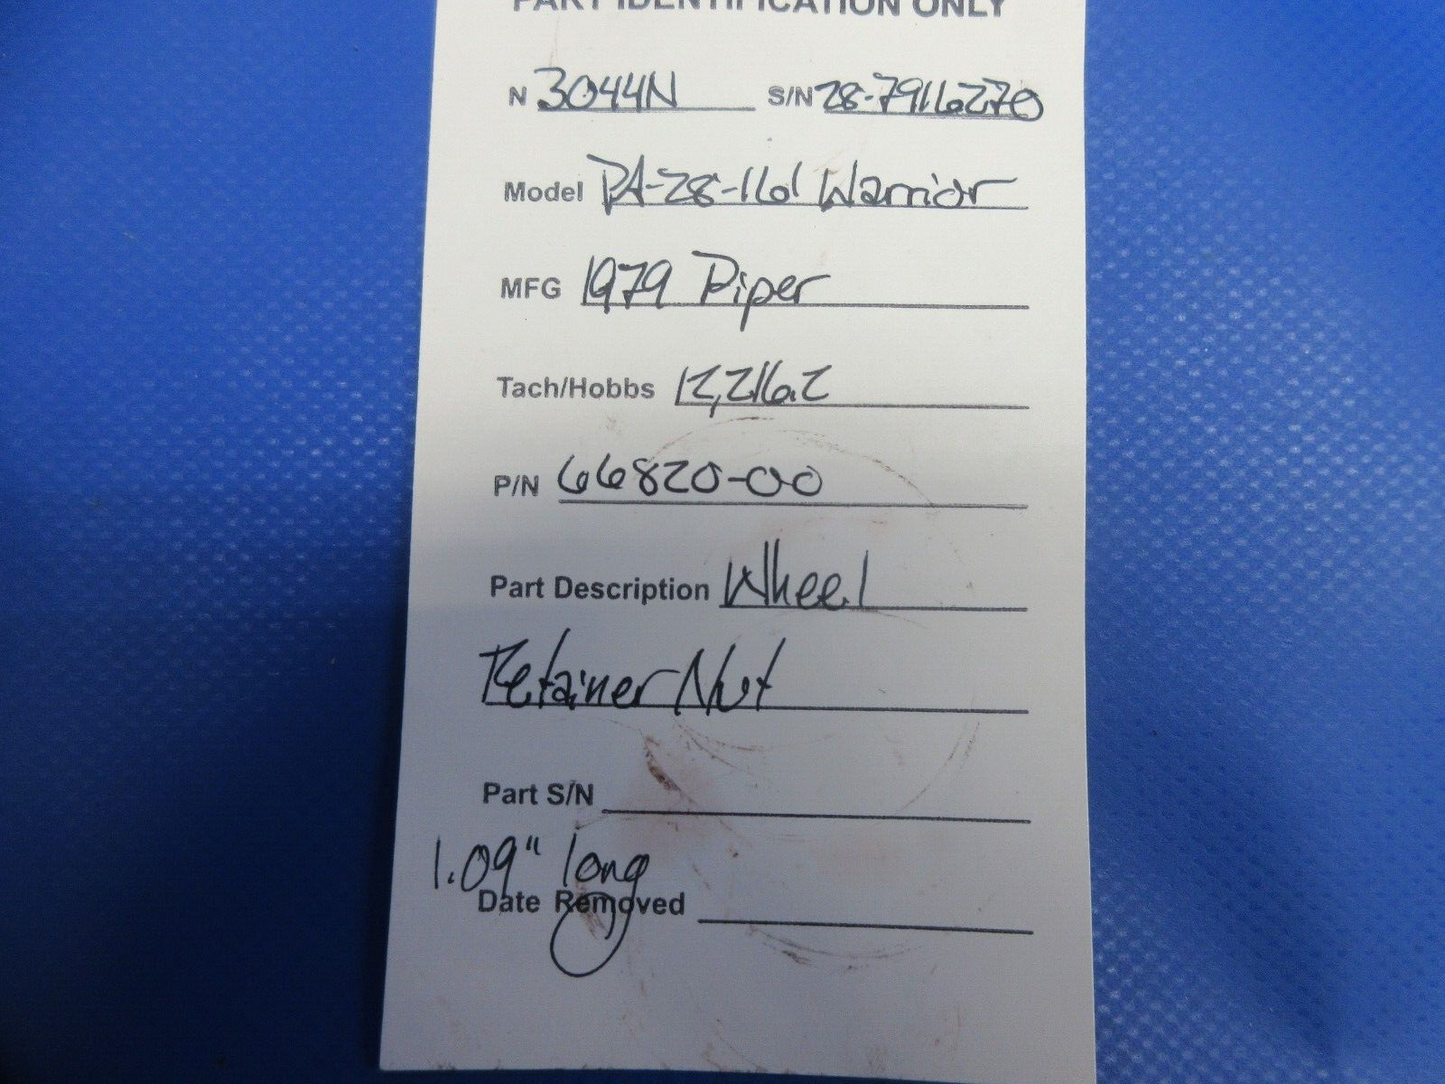 PART IDENTIFICATION ONLY
N 3044N S/N 28-7916270
Model PA-28-161 Warrior
MFG 1979 Piper
Tach/Hobbs 12,216.2
P/N 66820-00
Part Description Wheel
Retainer Nut
Part S/N
1.09" long
Date Removed